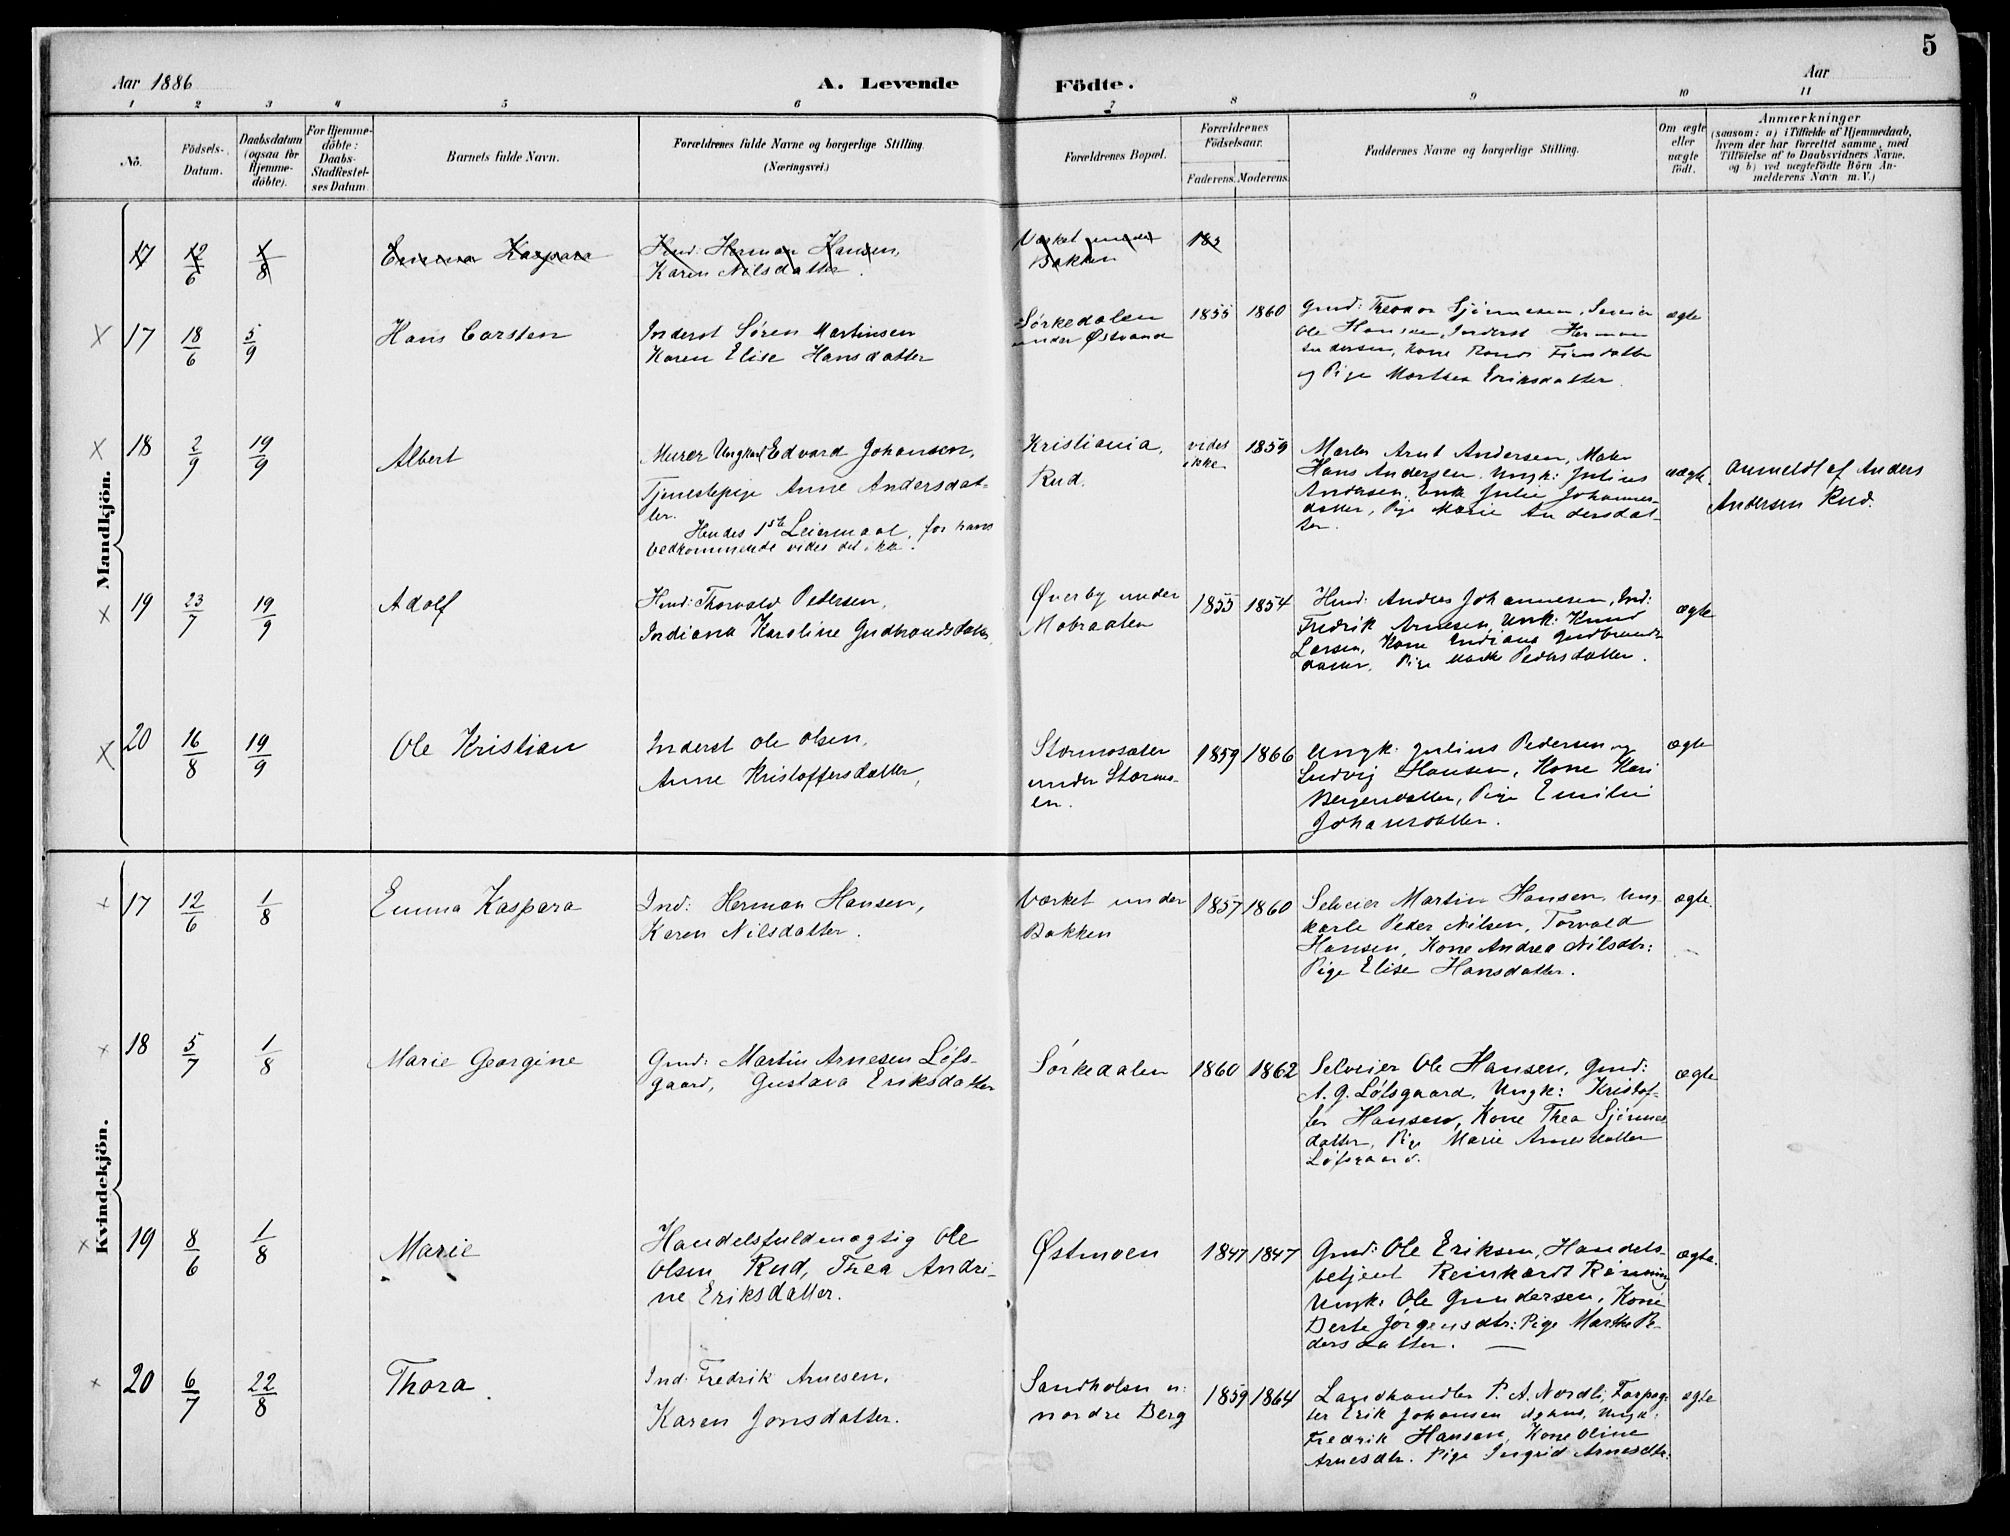 5
Aar 1886
A. Levende
Födte.
Aar
1 2 3 4 5 6 7 8 9 10 11
No.
Födsels-
Datum.
Daabsdatum
(ogsaa for
Hjemme-
döbte).
For Hjemme-
döbte:
Daabs-
Stadfæstel-
ses Datum
Barnets fulde Navn.
Forældrenes fulde Navne og borgerlige Stilling
(Næringsvei.)
Forældrenes Bopæl.
Forældrenes
Födselsaar.
Faderens. Moderens.
Faddernes Navne og borgerlige Stilling.
Om ægte
eller
uægte
födt.
Anmærkninger
(saasom: a) i Tilfælde af Hjemmedaab,
hvem der har forrettet samme, med
Tilföielse af to Daabsvidners Navne,
og b) ved uægtefödte Börn An-
melderens Navn m. V.)
Mandkjön.
17
12/6
1/8
Emma Kaspara
Ind: Herman Hansen,
Karen Nilsdatter.
Værket under
Bakken
185
17
18/6
5/9
Hans Carsten
Inderst Søren Martinsen
Karen Elise Hansdatter
Sørkedalen
under Østvand
1855
1860
Grmd: Theodor Sjønnesen, Seleier
Ole Hansen, Inderst Herman
Andersen, Kone Randi Finsdatter
og Pige Marthea Eriksdatter.
ægte
18
2/9
19/9
Albert
Murer Ungkarl Edvard Johansen,
Tjenestepige Anne Andersdat-
ter.
Hendes 1ste Leiermaal, for hans
Vedkommende vides det ikke.
Kristiania,
Rud.
vides
ikke
1859
Maler Arnt Andersen, Maler
Hans Andersen, Ungk: Julius
Andersen, Enke Julie Johannes-
datter, Pige Marie Andersdat-
ter.
uægte.
Anmeldt af Anders
Andersen Rud.
19
23/7
19/9
Adolf
Hmd: Thorvald Petersen,
Indiana Karoline Gudbrandsdatter,
Øverby under
Mobraaten
1855
1854
Hmd: Andres Johannesen, Ind:
Fredrik Arnesen, Unk: Knud
Larsen, Kone Indiana Gudbrands
datter, Pige Marthe Pedersdatter.
ægte
20
16/8
19/9
Ole Kristian
Inderst Ole Olsen,
Anne Kristoffersdatter,
Stormosæter
under Stormo-
en.
1859
1866
Ungk: Julius Pedersen og
Ludvig Hansen, Kone Kari
Bergersdatter, Pige Emilie
Johansdatter.
ægte
Kvindekjön.
17
12/6
1/8
Emma Kaspara
Ind: Herman Hansen,
Karen Nilsdatter.
Værket under
Bakken
1857
1860
Selveier Martin Hansen, Ung-
karle Peder Nilsen, Torvald
Hansen, Kone Andrea Nilsdtr:
Pige Elise Hansdatter.
ægte.
18
5/7
1/8
Marie Georgine
Gmd: Martin Arnesen Løfs-
gaard, Gustava Eriksdatter
Sørkedalen
1860
1862
Selveier Ole Hansen, Gmd:
A. G. Løfsgaard, Ungk: Kristof-
fer Hansen, Kone Thea Sjønnes
datter, Pige Marie Arnesdatter
Løfsgaard.
ægte
19
8/6
1/8
Marie
Handelsfuldmægtig Ole
Olsen Rud, Thea Andri-
ne Eriksdatter.
Østmoen
1847
1847
Gmd: Ole Eriksen, Handels-
betjent Reinhardt Rønning
Ungk: Ole Gundersen, Kone
Berte Jørgensdtr: Pige Marthe Pe-
dersdatter.
ægte.
20
6/7
22/8
Thora
Ind: Fredrik Arnesen,
Karen Jonsdatter.
Sandholen u:
nordre Berg
1859
1864
Landhandler P. A. Nordli, Forpag-
ter Erik Johansen, Ungk:
Fredrik Hansen, Kone Oline
Arnesdtr. Pige Ingrid Arnesdtr.
ægte